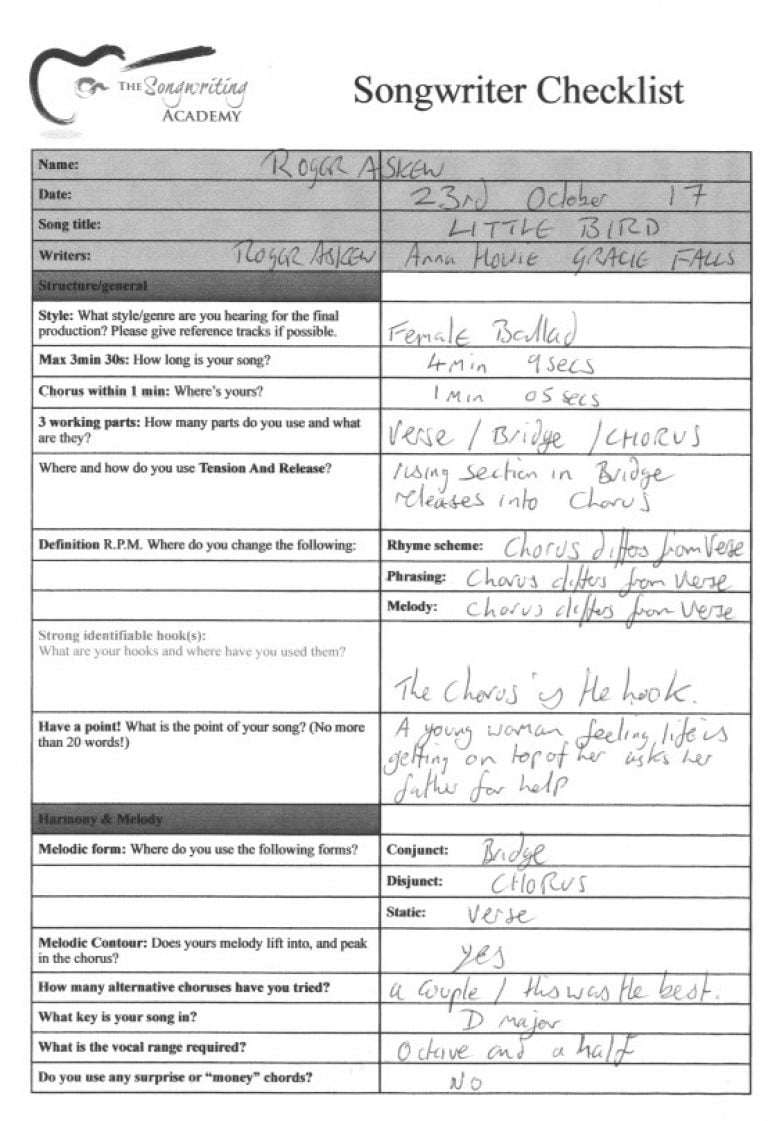 THE Songwriting
ACADEMY
Songwriter Checklist
Name: ROGER ASKEW
Date: 23rd October 17
Song title: LITTLE BIRD
Writers: ROGER ASKEW Anna HOWIE GRACIE FALLS
Structure/general
Style: What style/genre are you hearing for the final
production? Please give reference tracks if possible.
Female Ballad
Max 3min 30s: How long is your song? 4 Min 9 secs
Chorus within 1 min: Where's yours? 1 Min 05 secs
3 working parts: How many parts do you use and what
are they?
Verse / Bridge / CHORUS
Where and how do you use Tension And Release?
rising section in Bridge
releases into Chorus
Definition R.P.M. Where do you change the following: Rhyme scheme: Chorus differs from Verse
Phrasing: Chorus differs from Verse
Melody: Chorus differs from Verse
Strong identifiable hook(s):
What are your hooks and where have you used them?
The Chorus is the hook.
Have a point! What is the point of your song? (No more
than 20 words!)
A young woman feeling life is
getting on top of her asks her
father for help
Harmony & Melody
Melodic form: Where do you use the following forms? Conjunct: Bridge
Disjunct: CHORUS
Static: Verse
Melodic Contour: Does yours melody lift into, and peak
in the chorus?
yes
How many alternative choruses have you tried? a couple / this was the best.
What key is your song in? D major
What is the vocal range required? Octave and a half
Do you use any surprise or "money" chords? NO